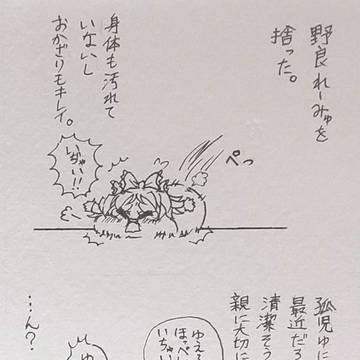 野良れーみゅを
捨った。
ぺっ
身体も汚れて
いないし
おかざりもキレイ。
いちゃい!!
孤児ゆに
最近だろ
清潔そう
親に大切に
ゆえ~
ほっぺ
いちゃい
ゆ
…ん?